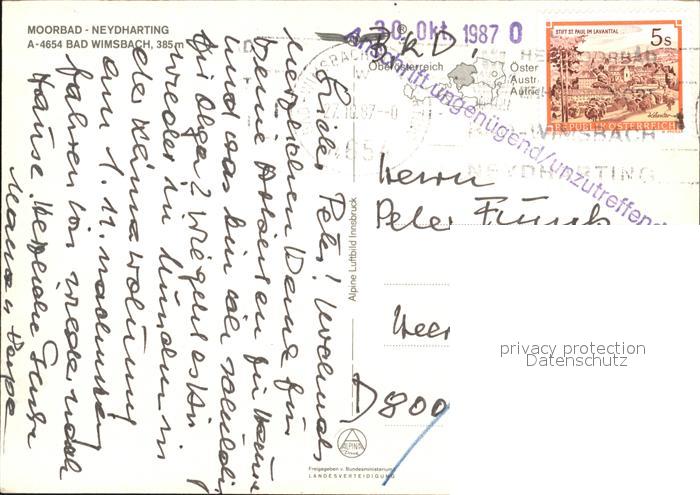 MOORBAD - NEYDHARTING
A-4654 BAD WIMSBACH, 385 m
Lieber Peter! Nochmals
herzlichen Dank für
Deine Arbeiten für Mama
und was bin ich schuldig
für Olga? Wie geht es Dir
wieder in München in
der Männerwohnung
am 1.11. nachmittag
fahren wir wieder nach
Hause. Herzliche Grüße
Mama u. Papa
Alpine Luftbild Innsbruck
30. Okt. 1987 0
Anschrift ungenügend/unzutreffend
BRD
Oberösterreich
27.10.87
4654
Öster
Austr
Autric
WIMSBACH
NEYDHARTING
STIFT ST. PAUL IM LAVANTTAL
5s
REPUBLIK ÖSTERREICH
Herrn
Peter
D 800
privacy protection
Datenschutz
ALPINE
Freigegeben v. Bundesministerium
LANDESVERTEIDIGUNG